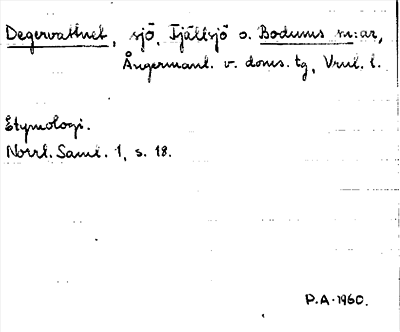 Degervattnet, sjö, Fjällsjö o. Bodums sn:ar,
Ångermanl. v. doms. tg, Vnrl. l.
Etymologi.
Norrl. Saml. 1, s. 18.
P.A. 1960.